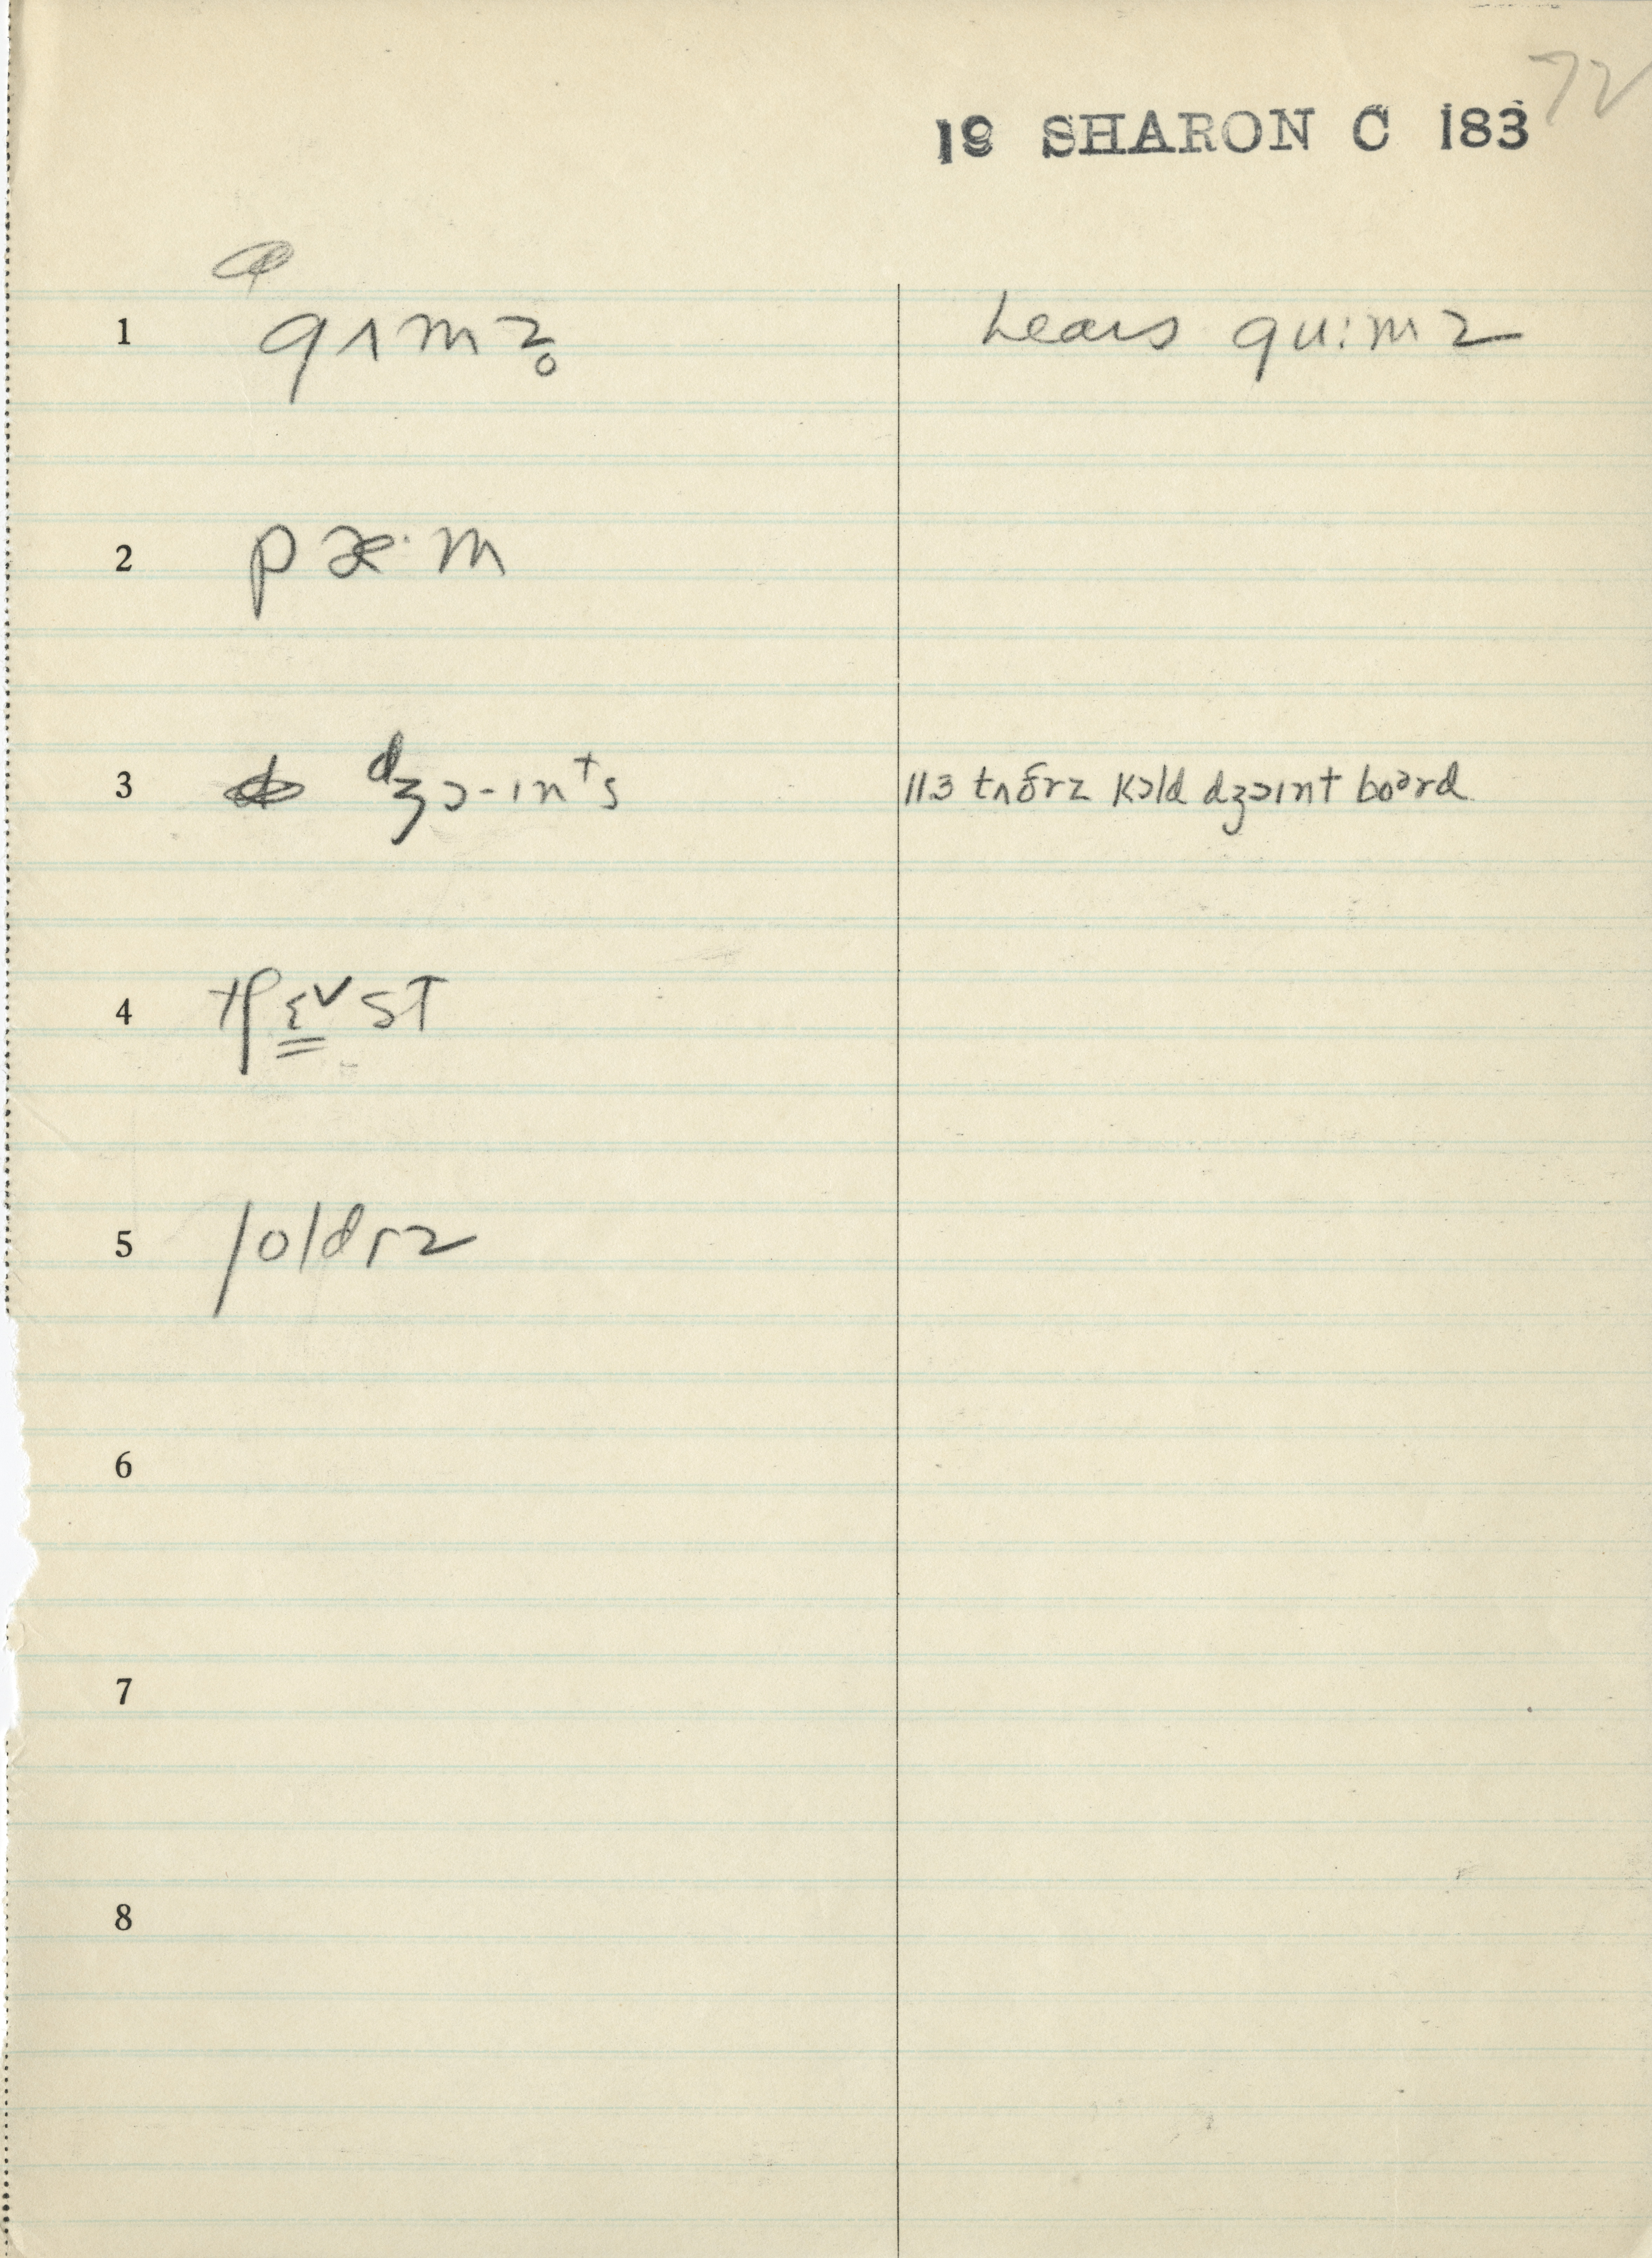 72
19 SHARON C 183
1 gʌmz̥ hears gu:mz
2 pæ·m
3 dʒɔ-ɪnᵗs 113 tʌðɾz kɔld dʒɔɪnt boərd
4 ɛ̳ᵛst
5 ʃoldɾz
6
7
8